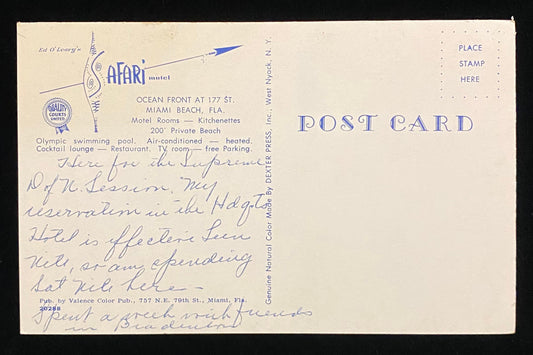 Ed O'Leary's
SAFARI motel
OCEAN FRONT AT 177 ST.
MIAMI BEACH, FLA.
Motel Rooms — Kitchenettes
200' Private Beach
QUALITY COURTS UNITED
Olympic swimming pool. Air-conditioned — heated.
Cocktail lounge — Restaurant. TV room — free Parking.
Here for the Supreme
D of N. Session. My
reservation in the Hdqts
Hotel is effective Sun
Nite, so am spending
Sat Nite here —
Pub. by Valence Color Pub., 757 N.E. 79th St., Miami, Fla.
20288
Spent a week with friends
in Bradenton
Genuine Natural Color Made By DEXTER PRESS, Inc. West Nyack, N. Y.
POST CARD
PLACE
STAMP
HERE